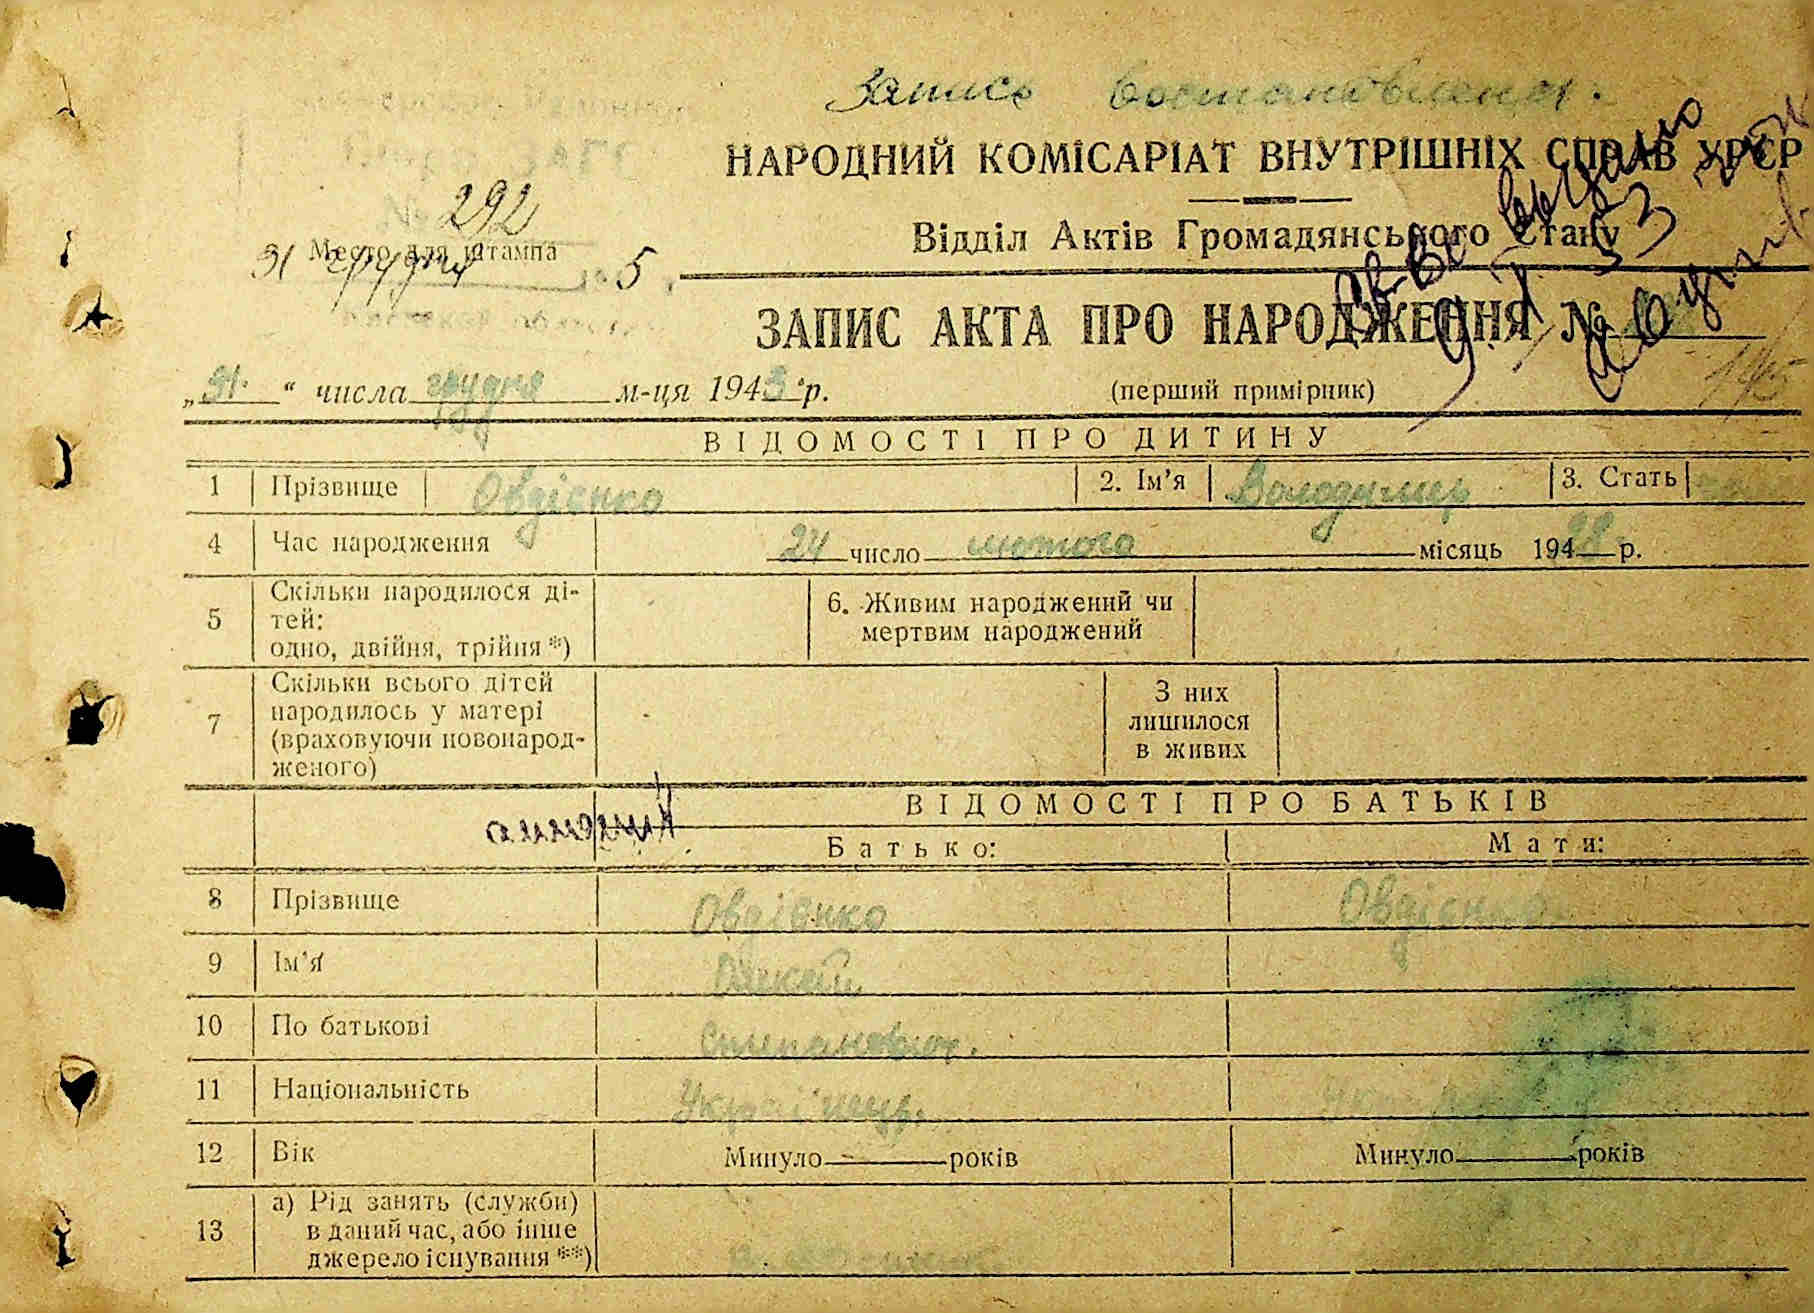 Запись восстановлена.
НАРОДНИЙ КОМІСАРІАТ ВНУТРІШНІХ СПРАВ УРСР
№ 292
Место для штампа
31 грудня 5
Відділ Актів Громадянського Стану
Св-во видано
9. 53
ЗАПИС АКТА ПРО НАРОДЖЕННЯ №
„31“ числа грудня м-ця 1943 р. (перший примірник)
145
ВІДОМОСТІ ПРО ДИТИНУ
1 Прізвище Овдієнко 2. Ім'я Володимир 3. Стать
4 Час народження 24 число лютого місяць 194 28 р.
5 Скільки народилося ді-
тей:
одно, двійня, трійня *)
6. Живим народжений чи
мертвим народжений
7 Скільки всього дітей
народилось у матері
(враховуючи новонарод-
женого)
З них
лишилося
в живих
ВІДОМОСТІ ПРО БАТЬКІВ
Батько: Мати:
8 Прізвище Овдієнко Овдієнко
9 Ім'я
10 По батькові Степанович.
11 Національність Українець.
12 Вік Минуло років Минуло років
13 а) Рід занять (служби)
в даний час, або інше
джерело існування **)